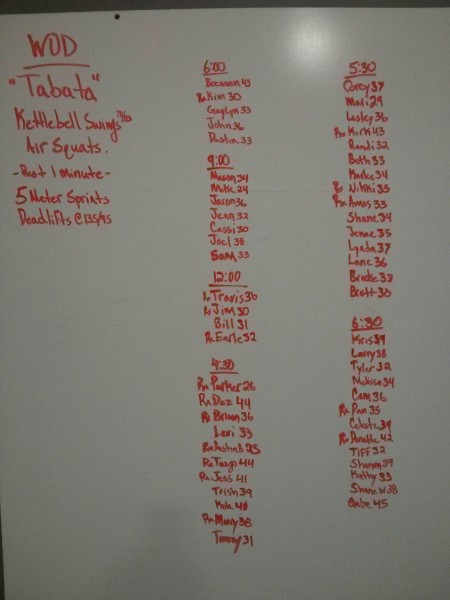 WOD
"Tabata"
Kettlebell Swings
Air Squats.
- Rest 1 minute -
5 Meter Sprints
Deadlifts @ 135/95
6:00
Brennan 43
Rx Kim 30
Gaylyn 33
John 36
Dustin 33
9:00
Mason 34
Mike 24
Jason 36
Jenn 32
Cassi 30
Joel 38
Sam 33
12:00
Rx Travis 36
Rx Jim 30
Bill 31
Rx Earle 32
4:30
Rx Parker 26
Rx Daz 44
Rx Brian 36
Lexi 33
Rx Dustin B 25
Rx Tango 44
Rx Jess 41
Trish 39
Kole 40
Rx Marry 38
Tommy 31
5:30
Corey 37
Mari 29
Lesley 36
Rx Kirk 43
Randi 32
Beth 33
34
Rx Nikki 35
Rx Amos 33
Shane 34
Jenae 35
Lynda 37
Lane 36
Brooke 33
Brett 30
6:30
Kris 39
Larry 38
Tyler 32
Melissa 34
Cam 36
Rx Pam 35
Celeste 39
Rx Danette 42
TIFF 32
39
Kathy 33
Shane W 38
Gabe 45